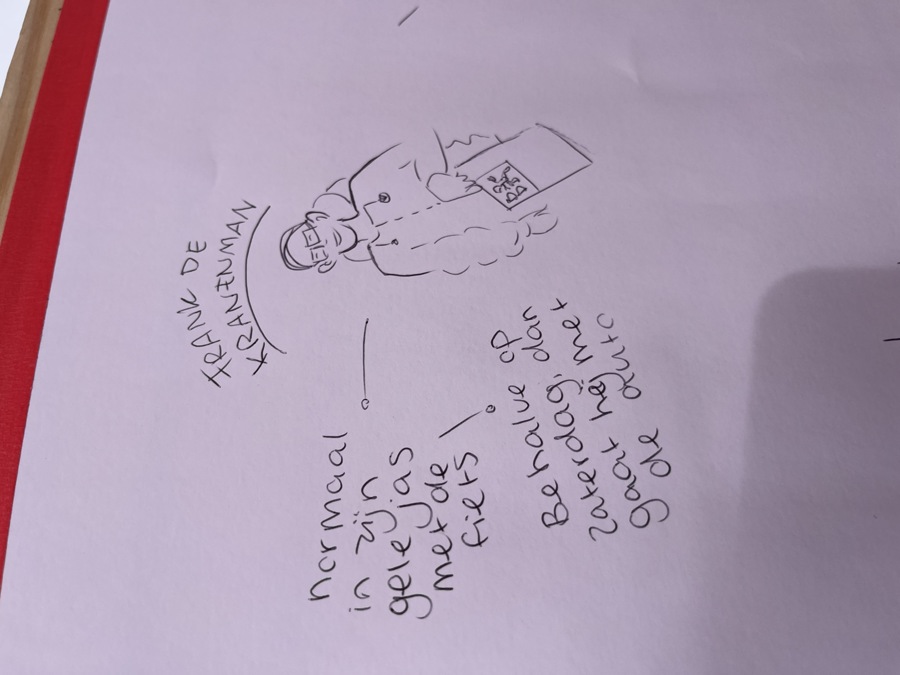 FRANK DE
KRANENMAN
normaal
in zijn
gele jas
met de
fiets
Behalve op
zaterdag, dan
gaat hij met
de auto